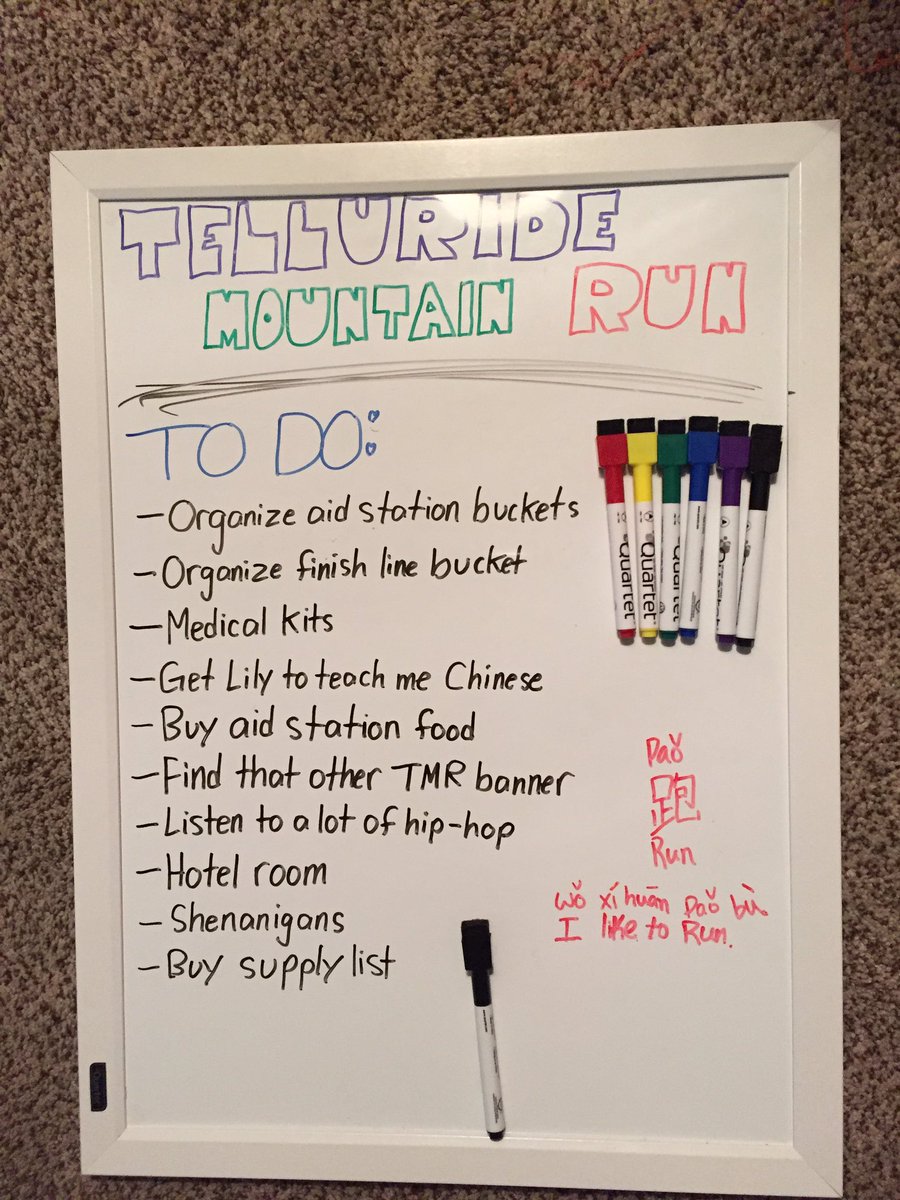 TELLURIDE
MOUNTAIN RUN
TO DO:
- Organize aid station buckets
- Organize finish line bucket
- Medical kits
- Get Lily to teach me Chinese
- Buy aid station food
- Find that other TMR banner
- Listen to a lot of hip-hop
- Hotel room
- Shenanigans
- Buy supply list
Quartet
Quartet
Quartet
Paǒ
跑
Run
wǒ xí huān paǒ bù
I like to Run.